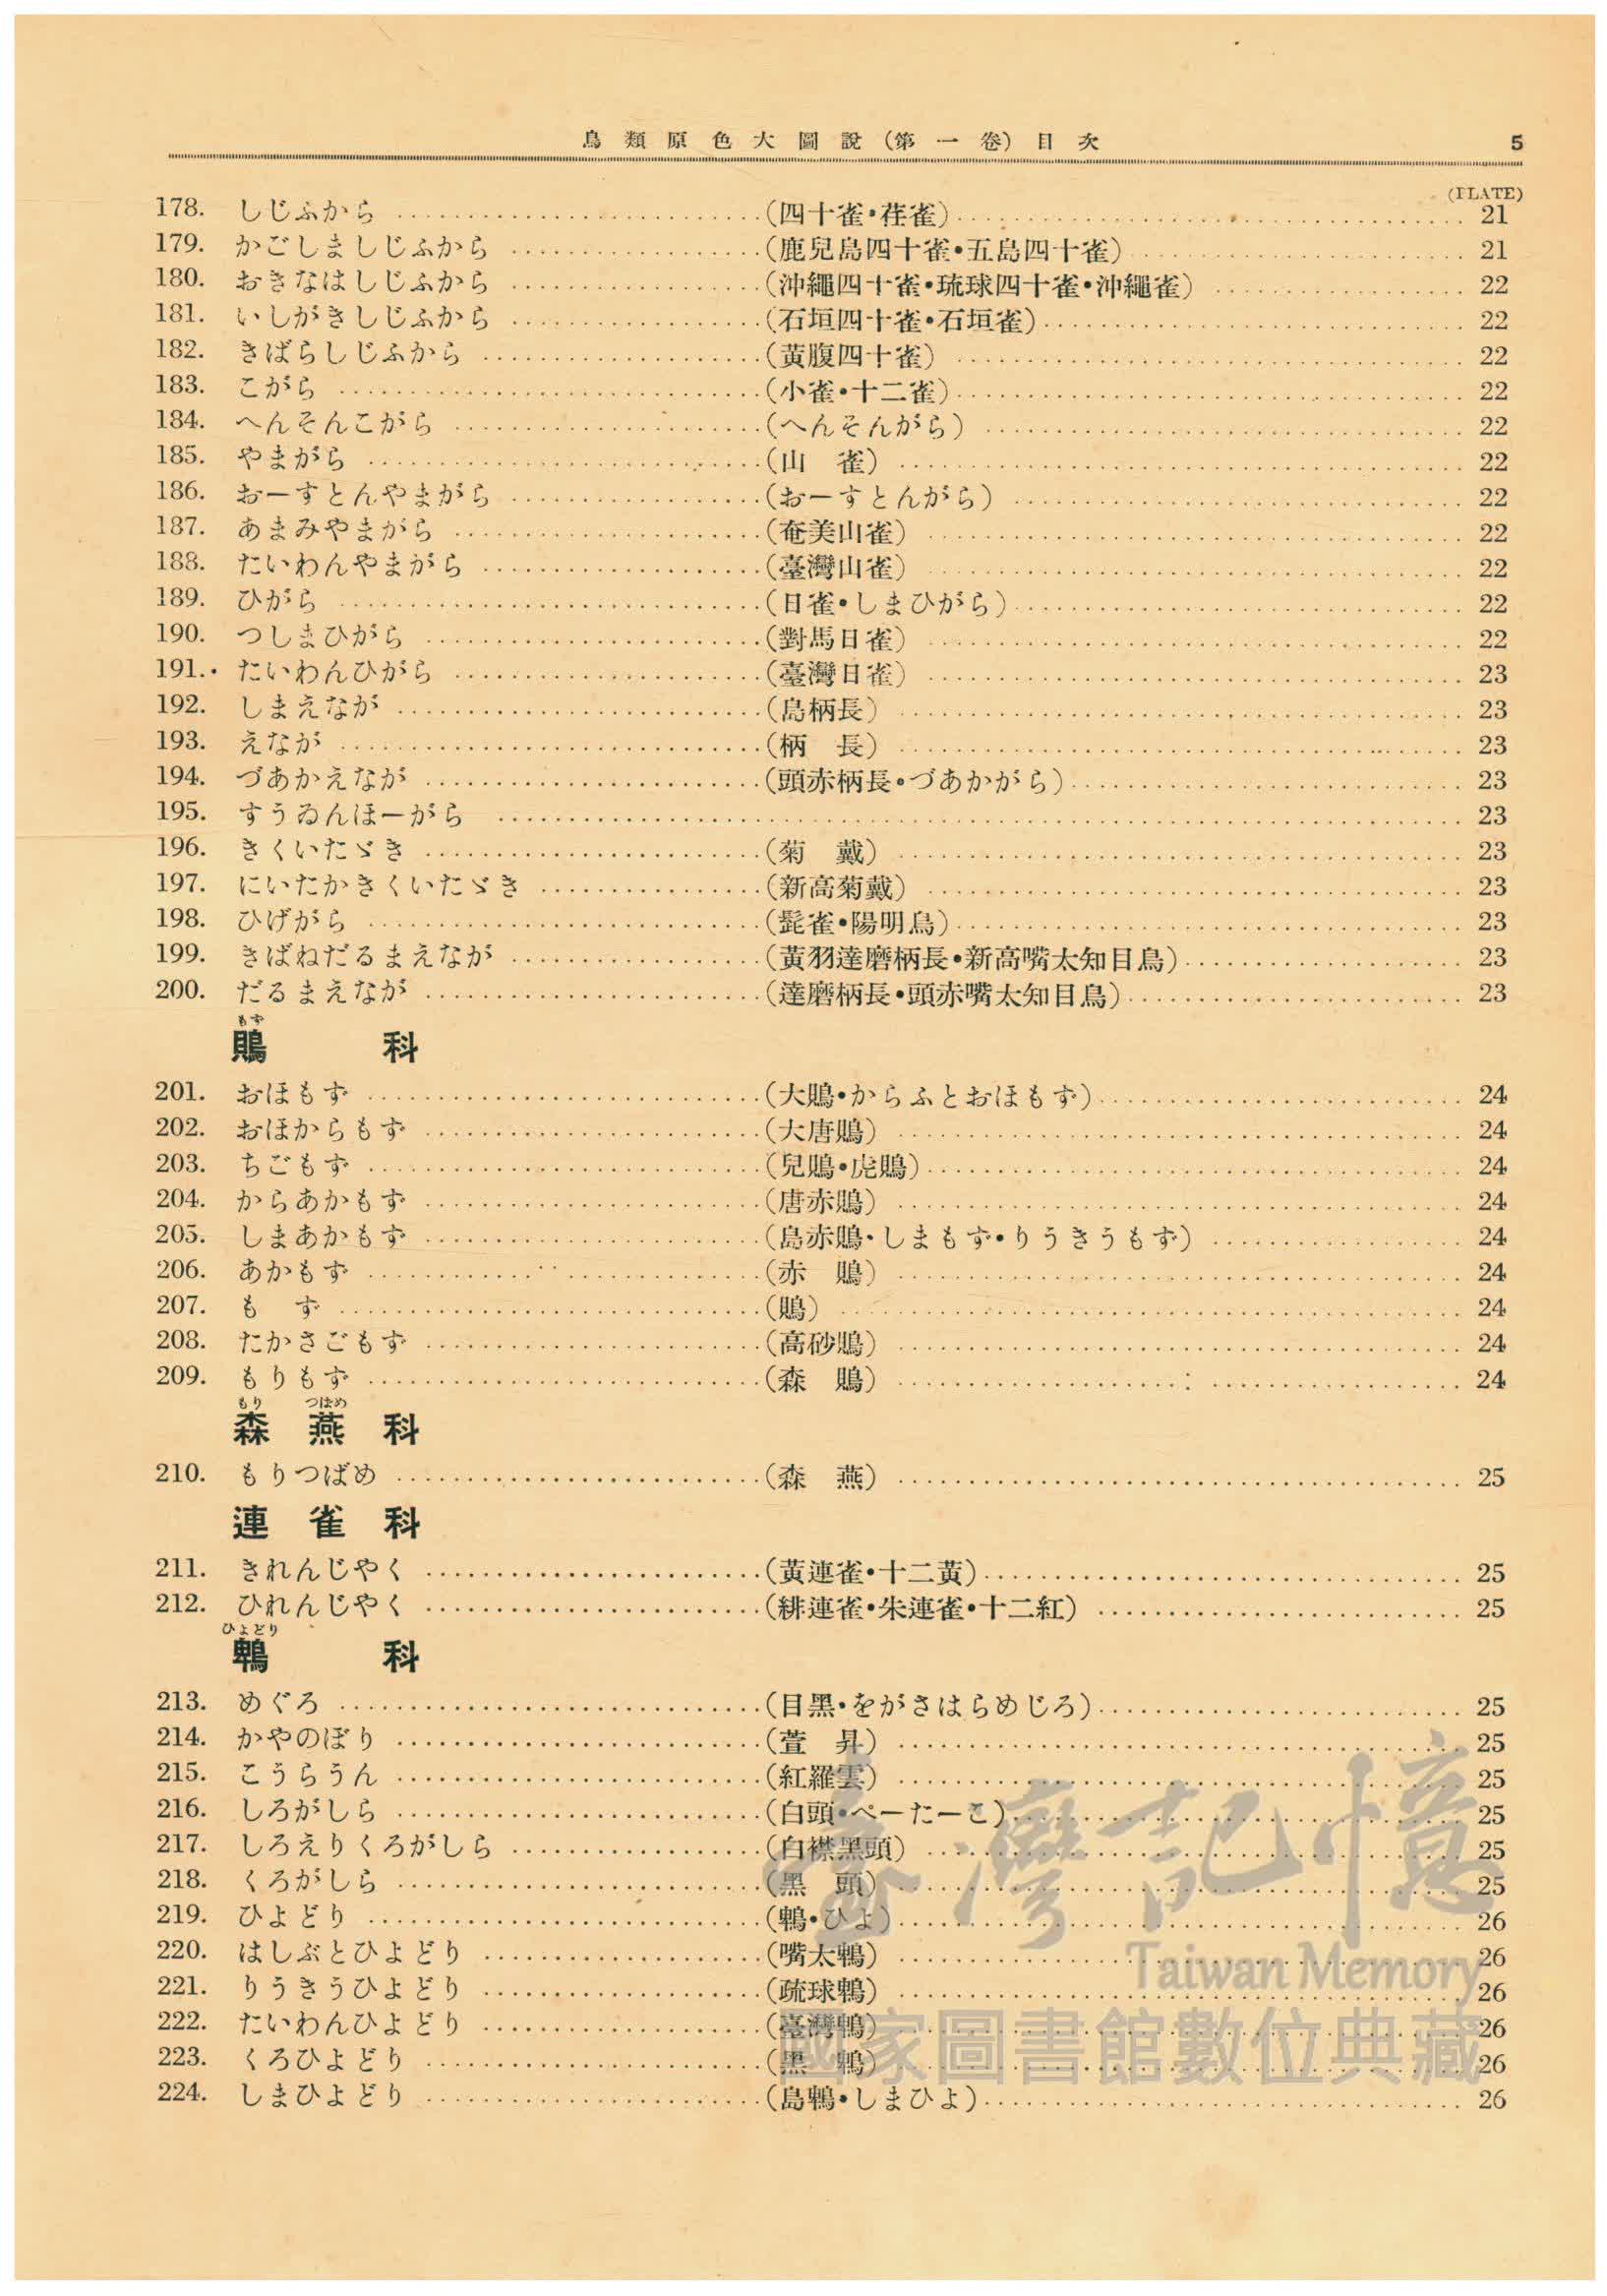 鳥類原色大圖說（第一卷）目次 5
(PLATE)
178. しじふから ……（四十雀・荏雀）…… 21
179. かごしましじふから ……（鹿兒島四十雀・五島四十雀）…… 21
180. おきなはしじふから ……（沖繩四十雀・琉球四十雀・沖繩雀）…… 22
181. いしがきしじふから ……（石垣四十雀・石垣雀）…… 22
182. きばらしじふから ……（黃腹四十雀）…… 22
183. こがら ……（小雀・十二雀）…… 22
184. へんそんこがら ……（へんそんがら）…… 22
185. やまがら ……（山　雀）…… 22
186. おーすとんやまがら ……（おーすとんがら）…… 22
187. あまみやまがら ……（奄美山雀）…… 22
188. たいわんやまがら ……（臺灣山雀）…… 22
189. ひがら ……（日雀・しまひがら）…… 22
190. つしまひがら ……（對馬日雀）…… 22
191. たいわんひがら ……（臺灣日雀）…… 23
192. しまえなが ……（島柄長）…… 23
193. えなが ……（柄　長）…… 23
194. づあかえなが ……（頭赤柄長・づあかがら）…… 23
195. すうゐんほーがら …… 23
196. きくいたゞき ……（菊　戴）…… 23
197. にいたかきくいたゞき ……（新高菊戴）…… 23
198. ひげがら ……（髭雀・陽明鳥）…… 23
199. きばねだるまえなが ……（黃羽達磨柄長・新高嘴太知目鳥）…… 23
200. だるまえなが ……（達磨柄長・頭赤嘴太知目鳥）…… 23
もず
鵙　科
201. おほもず ……（大鵙・からふとおほもず）…… 24
202. おほからもず ……（大唐鵙）…… 24
203. ちごもず ……（兒鵙・虎鵙）…… 24
204. からあかもず ……（唐赤鵙）…… 24
205. しまあかもず ……（島赤鵙・しまもず・りうきうもず）…… 24
206. あかもず ……（赤　鵙）…… 24
207. も　ず ……（鵙）…… 24
208. たかさごもず ……（高砂鵙）…… 24
209. もりもず ……（森　鵙）…… 24
もり つばめ
森燕科
210. もりつばめ ……（森　燕）…… 25
連雀科
211. きれんじやく ……（黃連雀・十二黃）…… 25
212. ひれんじやく ……（緋連雀・朱連雀・十二紅）…… 25
ひよどり
鵯　科
213. めぐろ ……（目黑・をがさはらめじろ）…… 25
214. かやのぼり ……（萱　昇）…… 25
215. こうらうん ……（紅羅雲）…… 25
216. しろがしら ……（白頭・ぺーたーこ）…… 25
217. しろえりくろがしら ……（白襟黑頭）…… 25
218. くろがしら ……（黑　頭）…… 25
219. ひよどり ……（鵯・ひよ）…… 26
220. はしぶとひよどり ……（嘴太鵯）…… 26
221. りうきうひよどり ……（疏球鵯）…… 26
222. たいわんひよどり ……（臺灣鵯）…… 26
223. くろひよどり ……（黑　鵯）…… 26
224. しまひよどり ……（島鵯・しまひよ）…… 26
臺灣記憶
Taiwan Memory
國家圖書館數位典藏